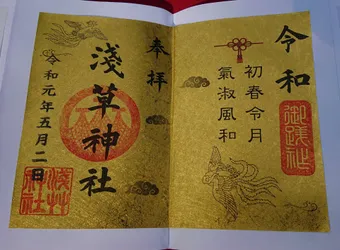 令和
初春令月
氣淑風和
奉拝
淺草神社
令和元年五月二日
淺草
神社